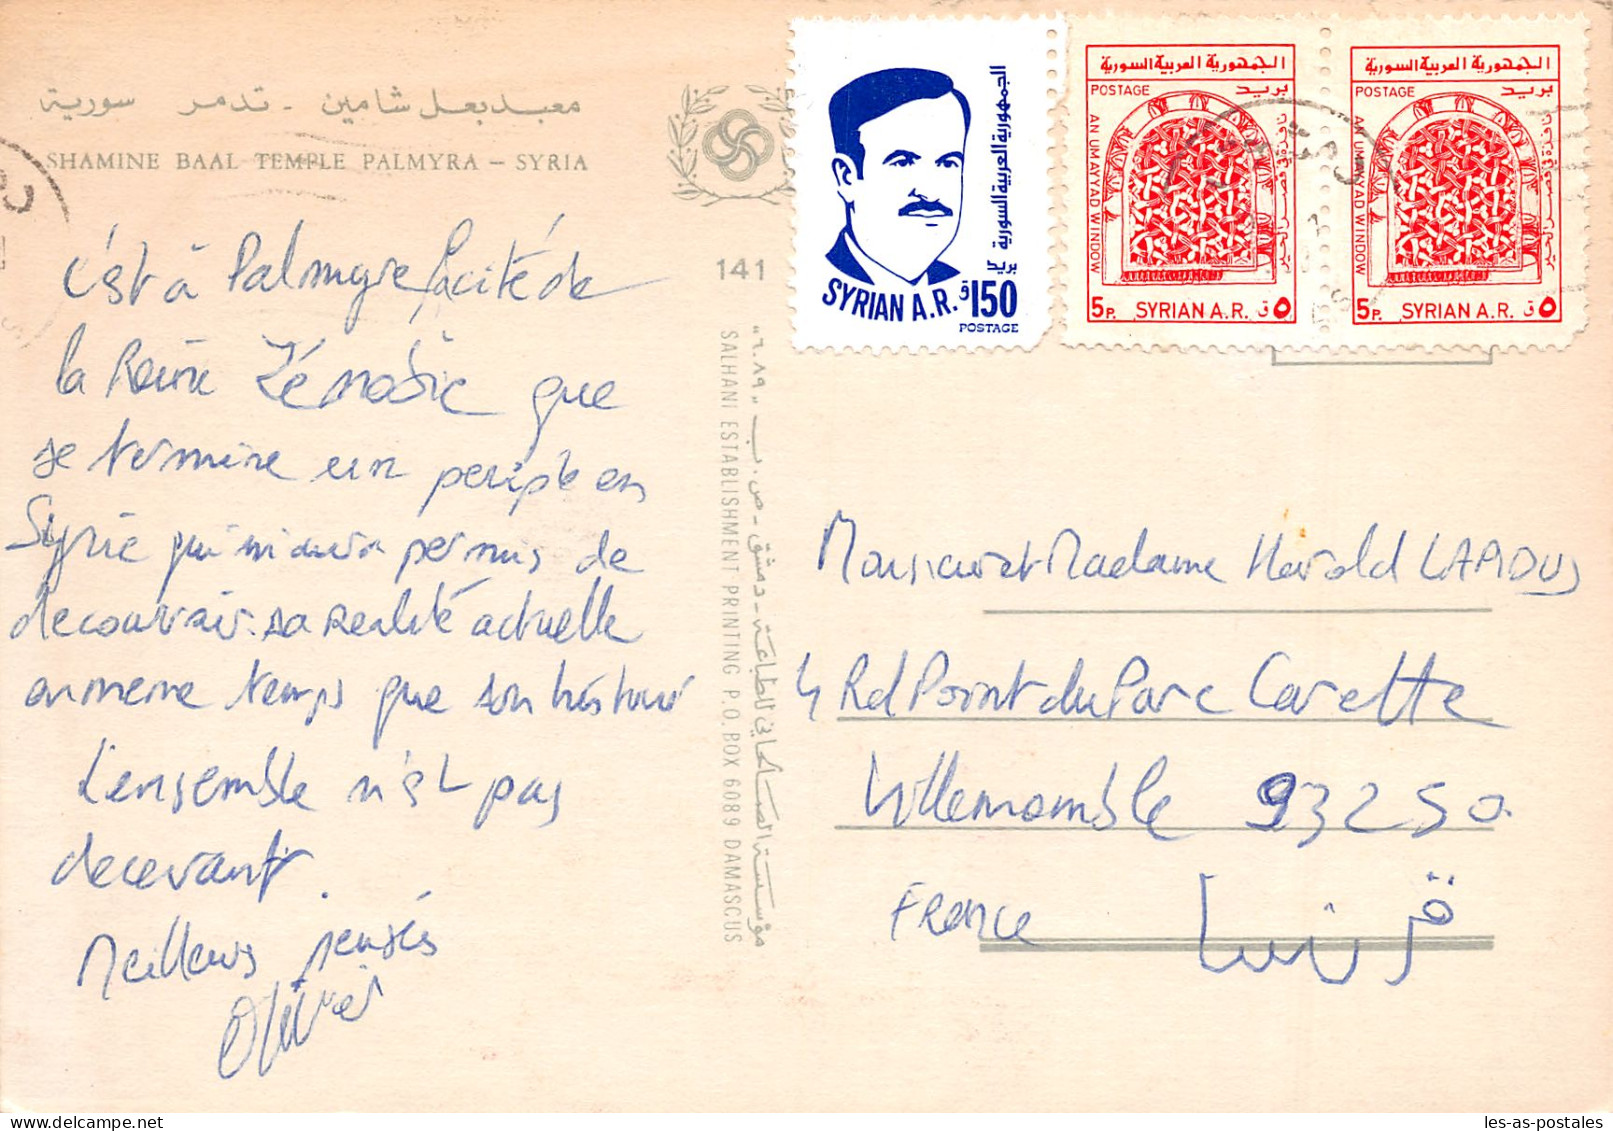 معبد بعل شامين - تدمر سورية
SHAMINE BAAL TEMPLE PALMYRA – SYRIA
C'est à Palmyre la cité de
la Reine Zénobie que
se termine un periple en
Syrie qui m'aura permis de
decouvrir sa realité actuelle
en meme temps que son histoire
L'ensemble n'est pas
decevant.
Meilleures pensées
Olivier
141
مؤسسة الصالحاني للطباعة - دمشق - ص.ب „٦٠٨٩"
SALHANI ESTABLISHMENT PRINTING P.O.BOX 6089 DAMASCUS
الجمهورية العربية السورية
بريد
SYRIAN A.R. ق 150
POSTAGE
الجمهورية العربية السورية
POSTAGE بريد
AN UMAYYAD WINDOW
نافذة في قصر الحير
5P. SYRIAN A.R. ق ٥
الجمهورية العربية السورية
POSTAGE بريد
AN UMAYYAD WINDOW
نافذة في قصر الحير
5P. SYRIAN A.R. ق ٥
Monsieur et Madame Harold
4 Rd Point du Parc Carette
Villemomble 93250
France قرنسا
les-as-postales